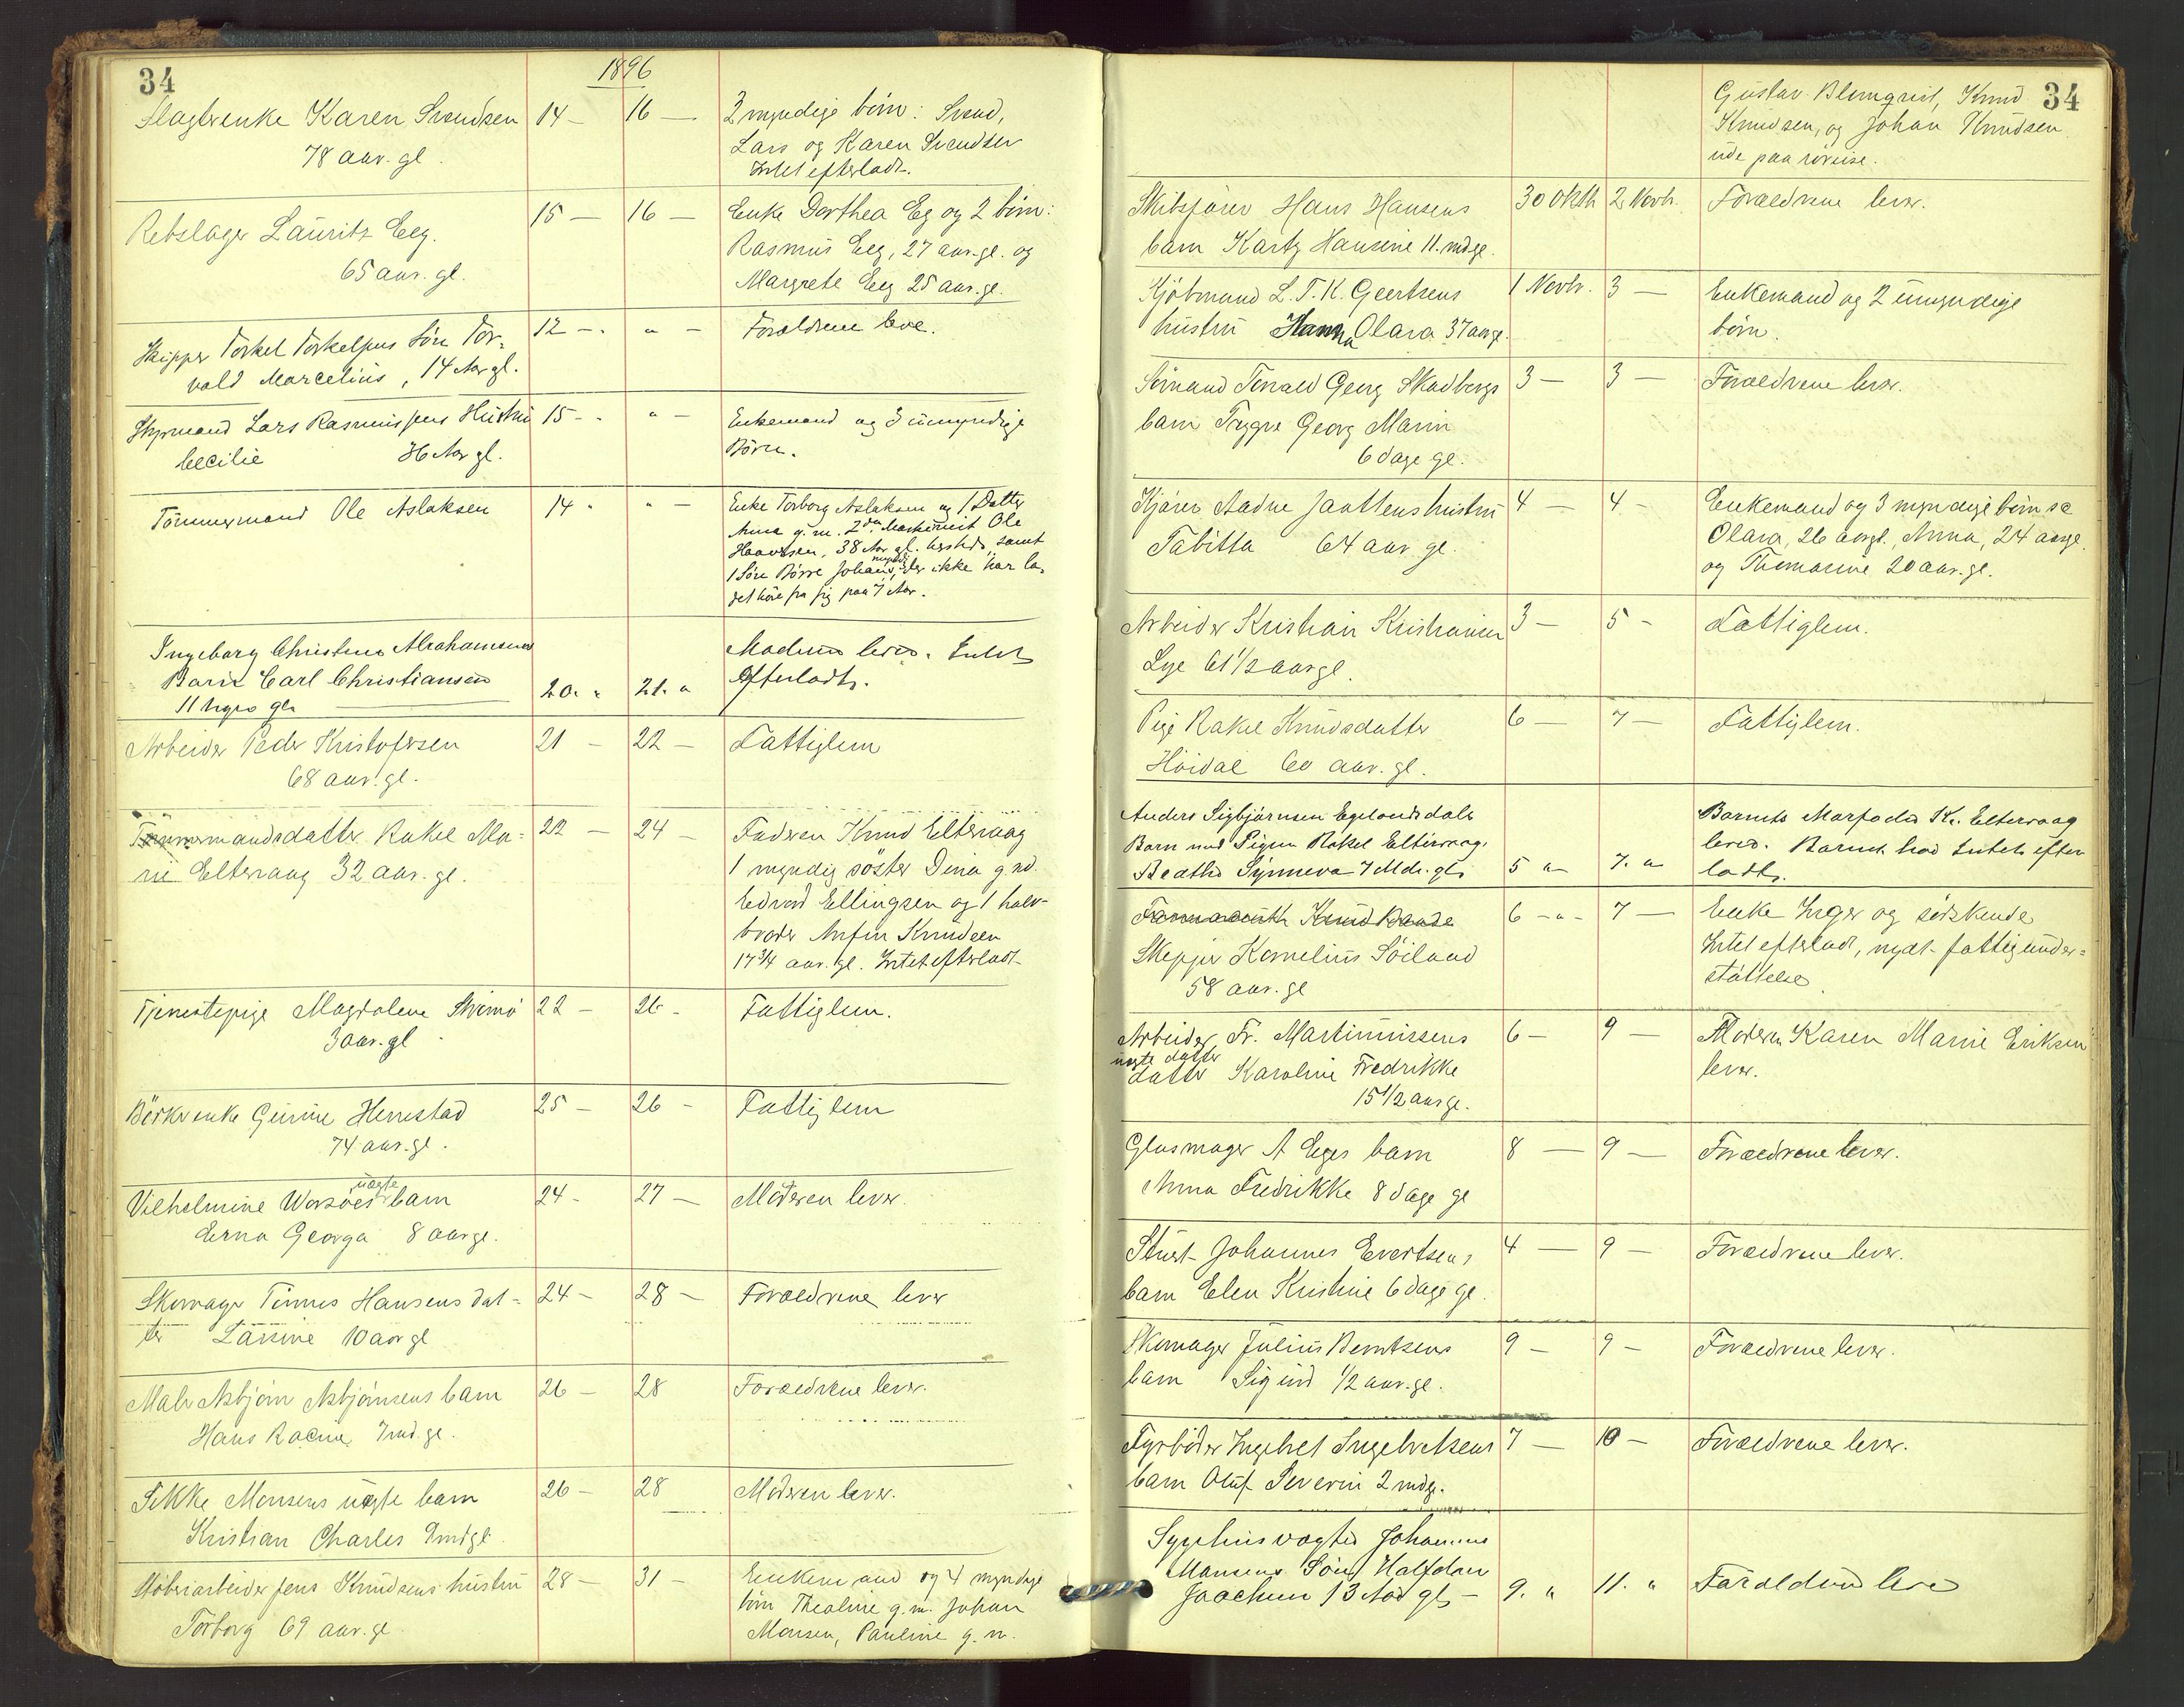 34
1896
Slagterenke Karen Svendsen 14 — 16 — 3 myndige börn: Svend,
78 aar. gl. Lars og Karen Svendsen
Intet efterladt.
Rebslager Lauritz Eeg. 15 — 16 — Enke Dorthea Eg og 2 börn:
65 aar. gl. Rasmus Eeg, 27 aar. gl. og
Margrete Eeg 25 aar. gl.
Skipper Torkel Torkelsens Sön Tor- 12 — " — Forældrene leve.
vald Marcelius, 14 Aar gl.
Styrmand Lars Rasmussens Hustru 15 - " — Enkemand og 3 umyndige
Cecilie 36 Aar gl. Börn.
Tömmermand Ole Aslaksen 14 " " — Enke Torborg Aslaksen og 1 Datter
Anna g. m. 2den Maskinist Ole
Haavesen, 38 Aar gl. herstds, samt
1 Sön Börre Johan, myndig, der ikke har la-
det höre fra sig paa 7 Aar.
Ingeborg Christine Abrahamsens Moderen lever. Intet
Barn Carl Christiansen 20. " 21. " Efterladt.
11 Uger gl.
Arbeider Peder Kristofersen 21 — 22 — Fattiglem
68 aar. gl.
Tömmermandsdatter Rakel Ma- 22 — 24 — Faderen Knud Eltervaag
rie Eltervaag 32 aar. gl. 1 myndig söster Dina g. m.
Edvard Ellingsen og 1 halv-
broder Anfin Knudsen
17 3/4 aar. gl. Intet efterladt
Tjenestepige Magdalena 22 — 26 - Fattiglem.
3 aar. gl
Börkerenke Gurine Herrestad 25 — 26 - Fattiglem
74 aar. gl.
Vilhelmine Worsöes uægte barn 24 - 27 — Moderen lever.
Erna Georga 8 aar gl.
Skomager Tönnes Hansens dat- 24 — 28 — Forældrene lever
ter Lausine 10 aar gl
Maler Asbjörn Asbjörnsens barn 26 — 28 Forældrene lever.
Hans 7 md. gl.
Sikke Monsens uægte barn 26 — 28 Moderen lever.
Kristian Charles 9 md gl.
Stöberiarbeider Jens Knudsens hustru 28 — 31 — Enkemand og 4 myndige
Torborg 69 aar. gl. börn Thealine g. m. Johan
Monsen, Pauline g. m.
34
Gustav Blomqvist, Knud
Knudsen, og Johan Knudsen
ude paa söreise.
Skibsförer Hans Hansens 30 Oktb 2 Novb. Forældrene lever.
barn Karty Hansine 11. md gl.
Kjöbmand L. T. K. Geertsens 1 Novb. 3 — Enkemand og 2 umyndige
hustru Hanna Olara 37 aar gl. börn.
Sömand Torvald Georg Skadbergs 3 — 3 — Forældrene lever.
barn Trygve Georg Marin
6 dage gl.
Kjörer Aadne Jaattens hustru 4 — 4 - Enkemand og 3 myndige börn sc
Tabitta 64 aar. gl. Olara, 26 aar gl., Anna, 24 aar gl.
og Thomasine 20 aar. gl.
Arbeider Kristian Kristiansen 3 — 5 - Fattiglem.
Lye 61 1/2 aar gl.
Pige Rakel Knudsdatter 6 — 7 — Fattiglem.
Höidal 60 aar. gl.
Anders Sigbjörnsen Egelandsdals Barnets Morfader Kr. Eltervaag
Barn med Pigen Rakel Eltervaag: lever. Barnet har Intet efter
Beathe Synneva 7 Mdr. gl. 5 " 7. " ladt.
6 - " - 7 — Enke Inger og södskende
Skipper Kornelius Söiland Intet efterladt, nydt fattigunder-
58 aar. gl stöttelse.
Arbeider Fr. Martinussens 6 — 9 — Moderen Karen Marie Eriksen
uægte datter
datter Karoline Fredrikke lever.
15 1/2 aar gl.
Glasmager A Eges barn 8 — 9 — Forældrene lever.
Anna Fredrikke 8 dage gl
Stuert Johannes Evertsens 4 — 9 — Forældrene lever.
barn Elen Kristine 6 dage gl.
Skomager Julius Berntsens 9 — 9 — Forældrene lever.
barn Sigurd 1/2 aar. gl.
Fyrböder Ingebret Ingebretsens 7 — 10 — Forældrene lever.
barn Oluf Severin 2 md gl.
Sygehusvagter Johannes
Monsens Sön Halfdan
Joachim 13 Aar gl. 9. " 11. " Forældrene lever